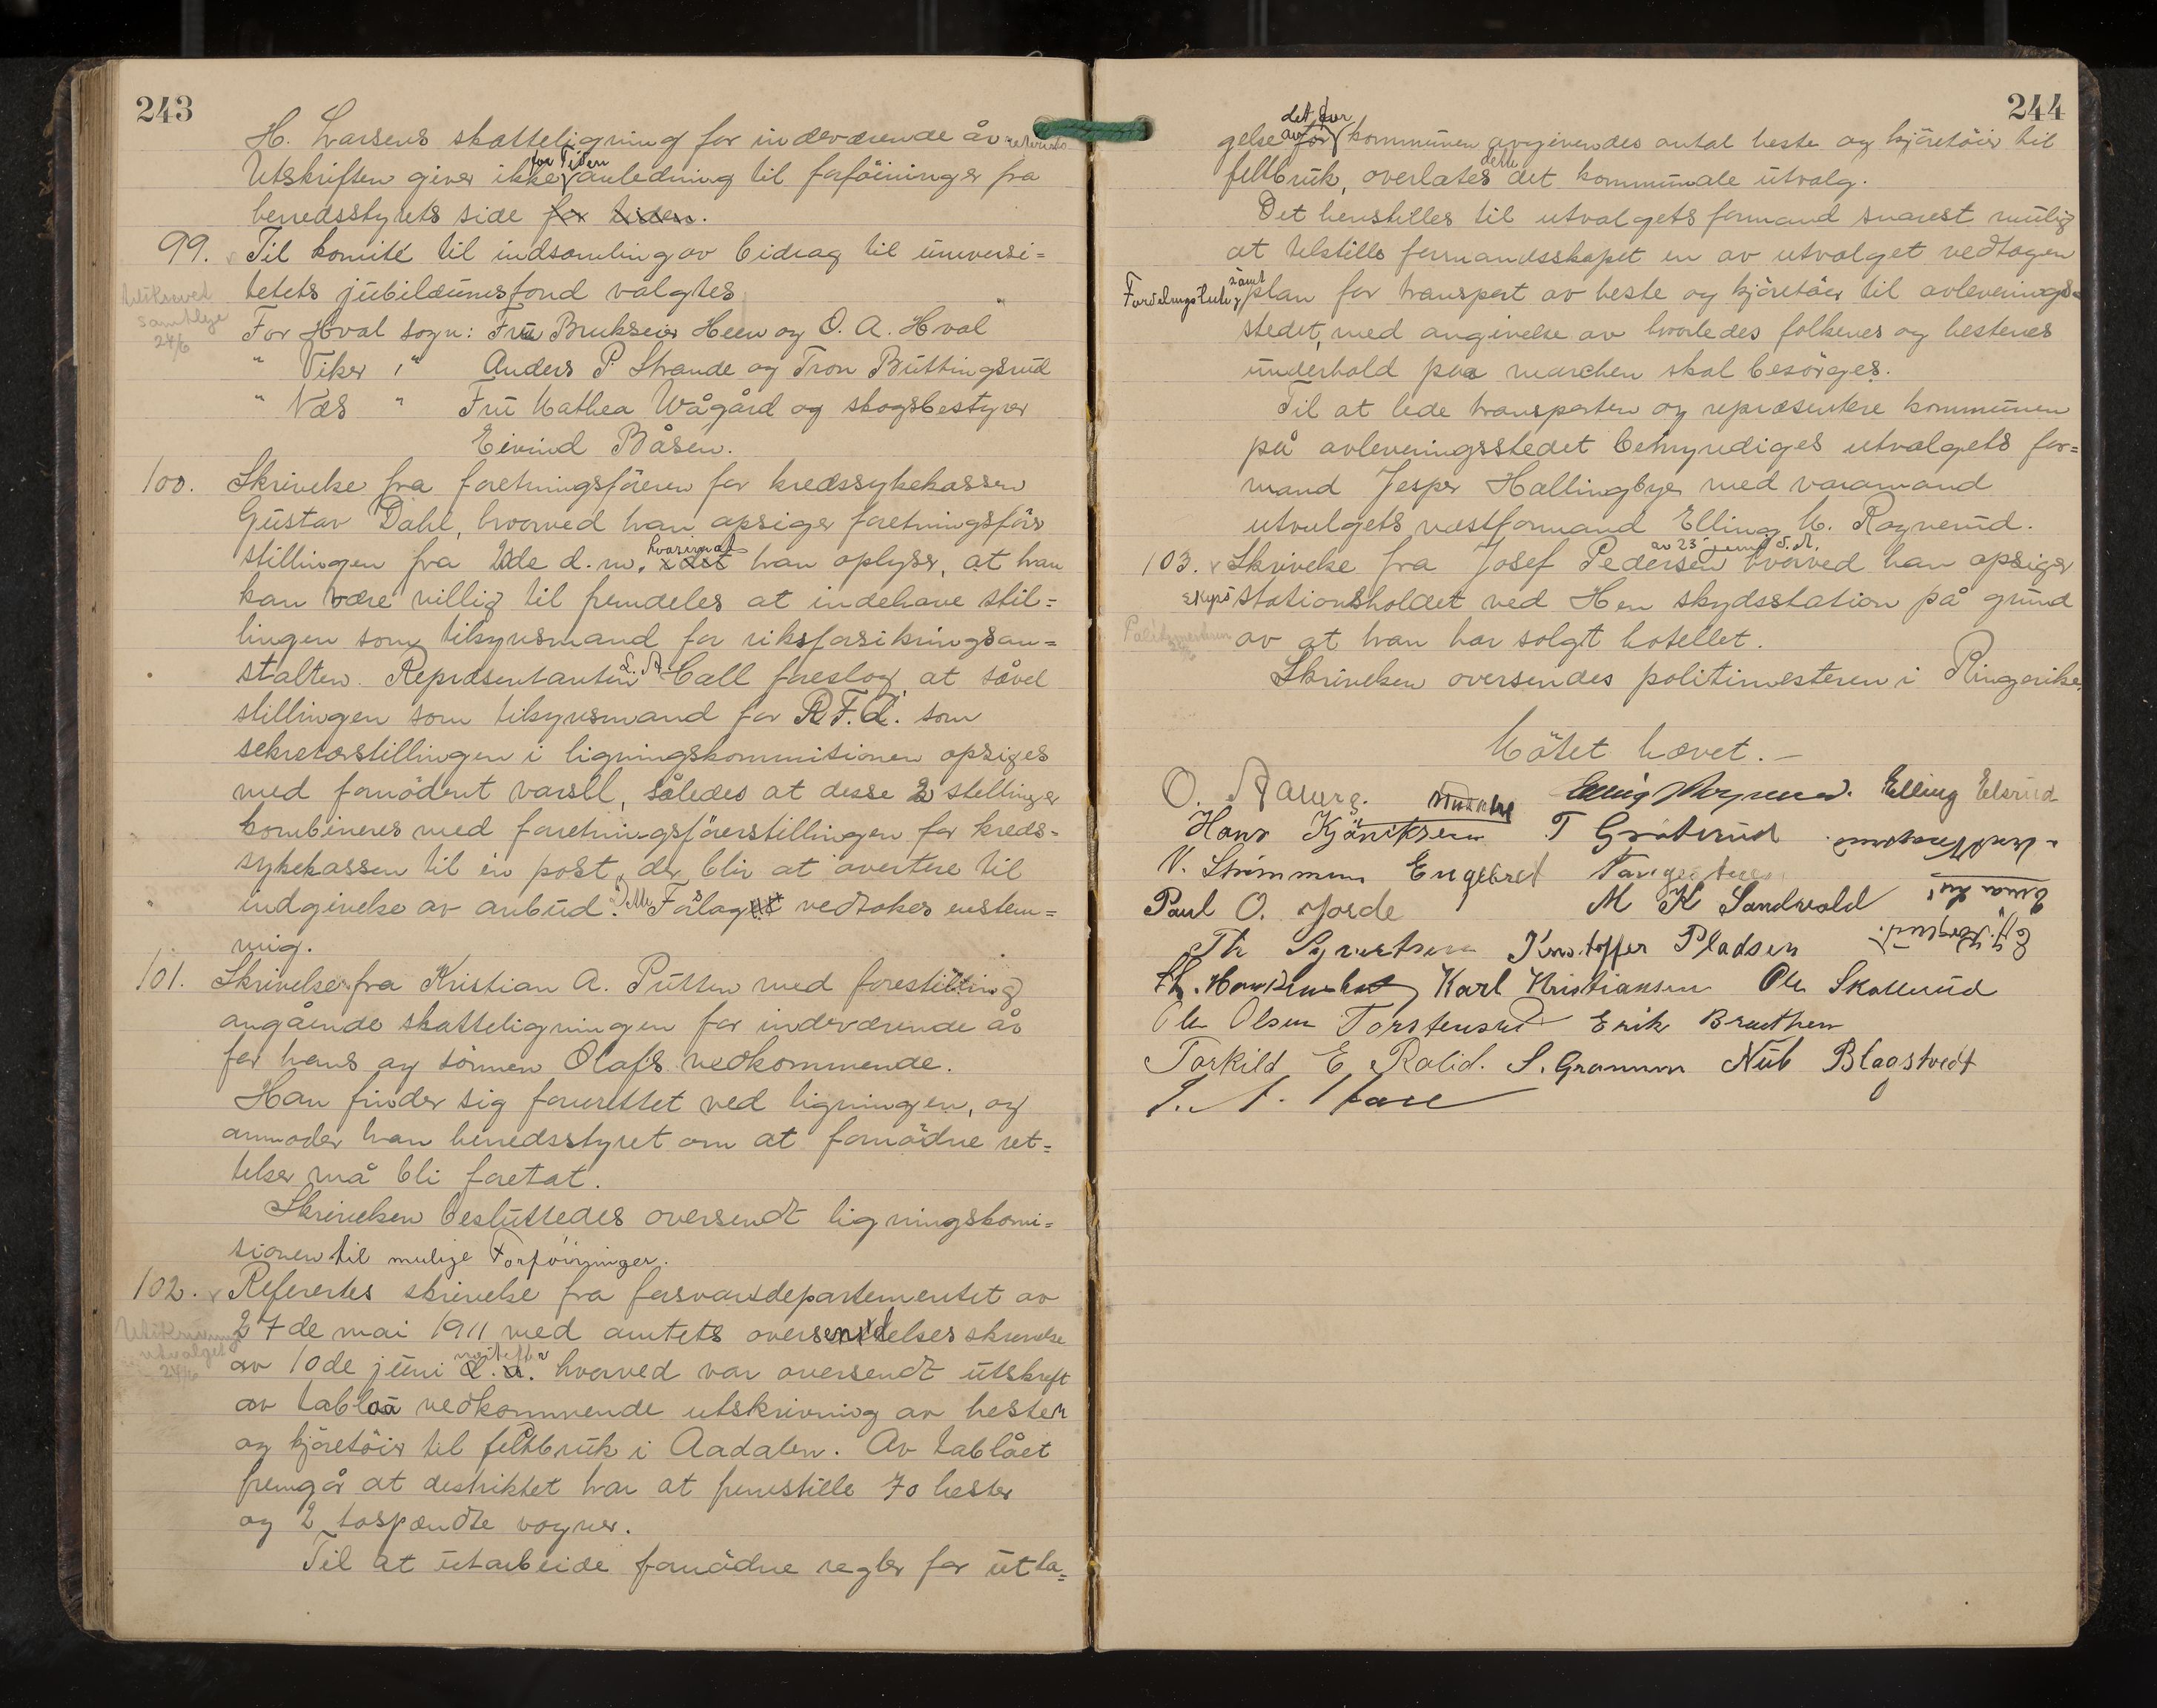 243
H. Larsens skatteligning for indeværende år
Utskriften giver ikke for Tiden anledning til forföininger fra
herredsstyrets side for tiden.
99. Til komité til indsamling av bidrag til universi=
tetets jubilæumsfond valgtes
samtlige
24/6
For Hval sogn: Fru Brukseier Heen og O. A. Hval
" Viker " Anders P. Strande og Tron Buttingsrud
" Næs " Fru Mathea Wågård og skogsbestyrer
Eivind Båsen.
100. Skrivelse fra forretningsföreren for kredssykekassen
Gustav Dahl, hvorved han opsiger forretningsförer
stillingen fra 2den d.m. hvorimot han oplyser, at han
kan være villig til fremdeles at indehave stil=
lingen som tilsynsmand for riksforsikringsan=
stalten. Repræsentanten L. A. Hall foreslog at såvel
stillingen som tilsynsmand for R.F.A. som
sekretærstillingen i ligningskommisionen opsiges
med fornödent varsel, således at desse 2 stellinger
kombineres med forretningsförerstillingen for kreds=
sykekassen til en post, der blir at avertere til
indgivelse av anbud. Dette Forslag vedtokes enstem=
mig.
101. Skrivelse fra Kristian A. Putten med forestilling
angående skatteligningen for indeværende år
for hans og sönnen Olafs vedkommende.
Han finder sig forurettet ved ligningen, og
anmoder han herredsstyret om at fornödne ret=
telser må bli foretat.
Skrivelsen besluttedes oversendt ligningskomi=
sionen til mulige Forföininger.
102. Refereertes skrivelse fra forsvarsdepartementet av
27de mai 1911 med amtets oversendelsesskrivelse
utvalget
24/6
av 10de juni næstefter hvorved var oversendt utskrift
av tablaa vedkommende utskrivning av hester
og kjöretöier til feltbruk i Aadalen. Av tablået
fremgår at destriktet har at fremstille 70 hester
og 2 tospændte vogner.
Til at utarbeide fornödne regler for utta=
244
det for
gelse av kommunen avgivendes antal heste og kjöretöier til
feltbruk, overlates dette det kommunale utvalg.
Det henstilles til utvalgets formand snarest mulig
at tilstille formandsskapet en av utvalget vedtagen
Fordelingsliste samt plan for transport av heste og kjöretöier til avleverings=
stedet, med angivelse av hvorledes folkenes og hestenes
underhold paa marchen skal besörges.
Til at lede transporten og repræsentere kommunen
på avleveringsstedet bemyndiges utvalgets for=
mand Jesper Hallingbye med varamand
utvalgets næstformand Elling M. Ragnerud.
103. Skrivelse fra Josef Pedersen av 23 juni d.A. hvorved han opsiger
skyds stationsholdet ved Hen skydsstation på grund
Politimesteren
av at han har solgt hotellet.
Skrivelsen oversendes politimesteren i Ringerike.
Mötet hævet.
O. Aaberg. Elling Elsrud
Hans Kjöniksen T Gråterud
V. Strimmen Engebret
Paul O. Jorde M K Sandvold
Th Syvertsen Kristoffer Pladsen
Karl Kristiansen Ole Skollerud
Ole Olsen Torstensrud Erik Braathen
Torkild E Rolid. S. Granum Nub Blagstvedt